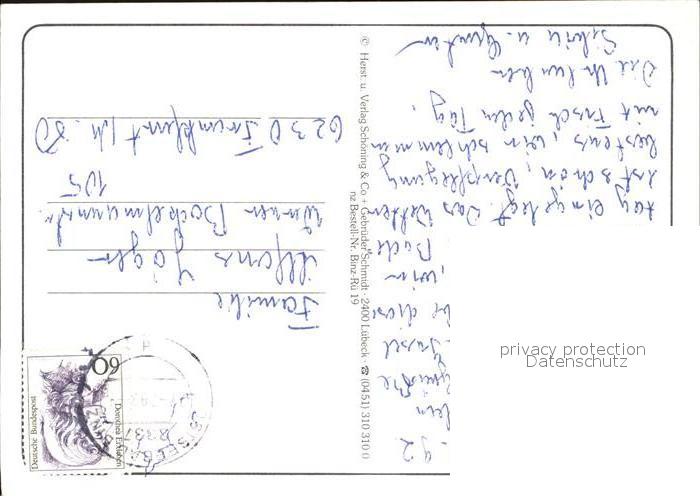 - 92
Grüße
Insel
be diese
, wir
Bade
tag eingelegt. Das Wetter
ist schön, Verpflegung
bestens, wir schlemmen
mit Fisch jeden Tag.
Silvia u. Günter
Familie
Alfons Jäger
Werner Bockelmannstr.
105
6230 Frankfurt / M. 80
© Herst. u. Verlag Schöning & Co + Gebrüder Schmidt · 2400 Lübeck · ☎ (0451) 310 310 0
nz Bestell-Nr. Binz-Rü 19
60
Deutsche Bundespost
Dorothea Erxleben
privacy protection
Datenschutz